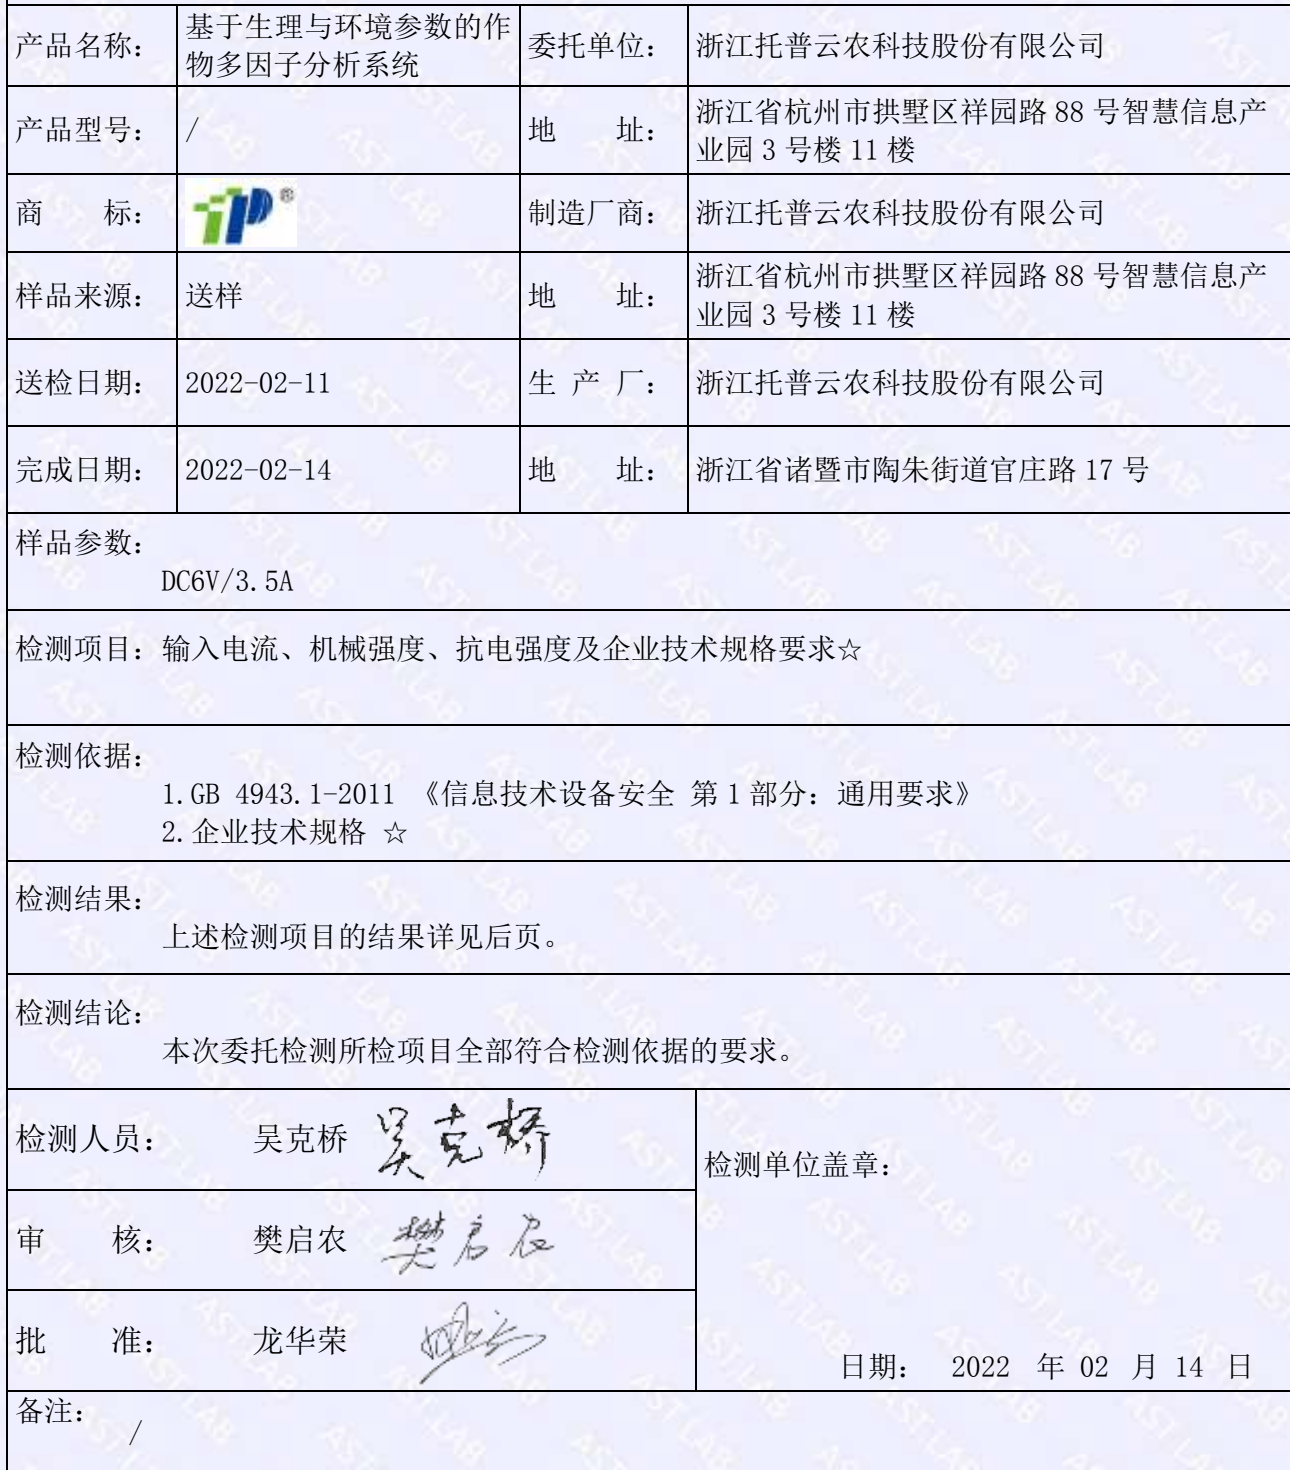 产品名称： 基于生理与环境参数的作 委托单位： 浙江托普云农科技股份有限公司
物多因子分析系统
产品型号： / 地 址： 浙江省杭州市拱墅区祥园路 88 号智慧信息产
业园 3 号楼 11 楼
商 标： ® 制造厂商： 浙江托普云农科技股份有限公司
样品来源： 送样 地 址： 浙江省杭州市拱墅区祥园路 88 号智慧信息产
业园 3 号楼 11 楼
送检日期： 2022-02-11 生 产 厂： 浙江托普云农科技股份有限公司
完成日期： 2022-02-14 地 址： 浙江省诸暨市陶朱街道官庄路 17 号
样品参数：
DC6V/3.5A
检测项目：输入电流、机械强度、抗电强度及企业技术规格要求☆
检测依据：
1.GB 4943.1-2011 《信息技术设备安全 第 1 部分：通用要求》
2.企业技术规格 ☆
检测结果：
上述检测项目的结果详见后页。
检测结论：
本次委托检测所检项目全部符合检测依据的要求。
检测人员： 吴克桥 吴克桥
检测单位盖章：
审 核： 樊启农 樊启农
批 准： 龙华荣
日期： 2022 年 02 月 14 日
备注：
/
AST.LAB